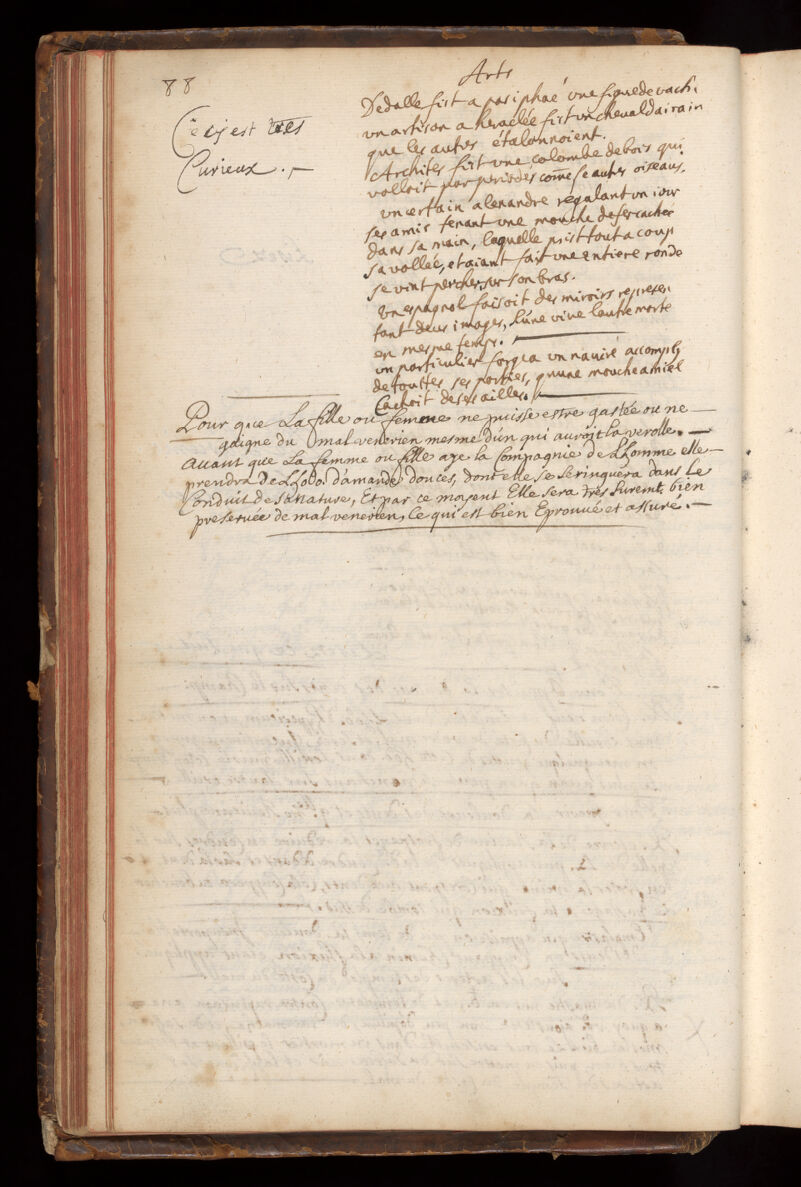 88
Arts
Cecy est tres
Curieux.
Dedalle fist a pasiphaé une figue de vach.
un artison a heraclée fist un cheval dairain
que les autres étalonnoient.
Architès fist une colombe de bois qui
volloit par periodes come se autres oiseaux.
un certain alexandre regalant un iour
ses amis tenant une mouche de fer cachée
dans sa main, laquelle prist tout a coup
sa vollée, et aiant fait une entiere ronde
se vint percher sur son bras.
Un espagnol faisoit des miroirs represen
tant deux images, l'une vive l'autre morte
en mesme temps.
un particulier forgea un navire accomply
de touttes ses parties, qu'une mouche a miel
Cachoit de ses ailles.
Pour que La fille ou femme ne puisse estre gastée ou ne
gaigne du mal venerien mesme d'un qui auroit la verolle.
Auant que La femme ou fille aye la Compagnie de L'homme elle
prendra de L'holo. d'amandes douces, dont elle se seringuera dans Le
Conduit de sa nature, Et par ce moyent Elle sera tres suremt. bien
preseruée de mal venerien, Ce qui est bien Eprouué et assuré.